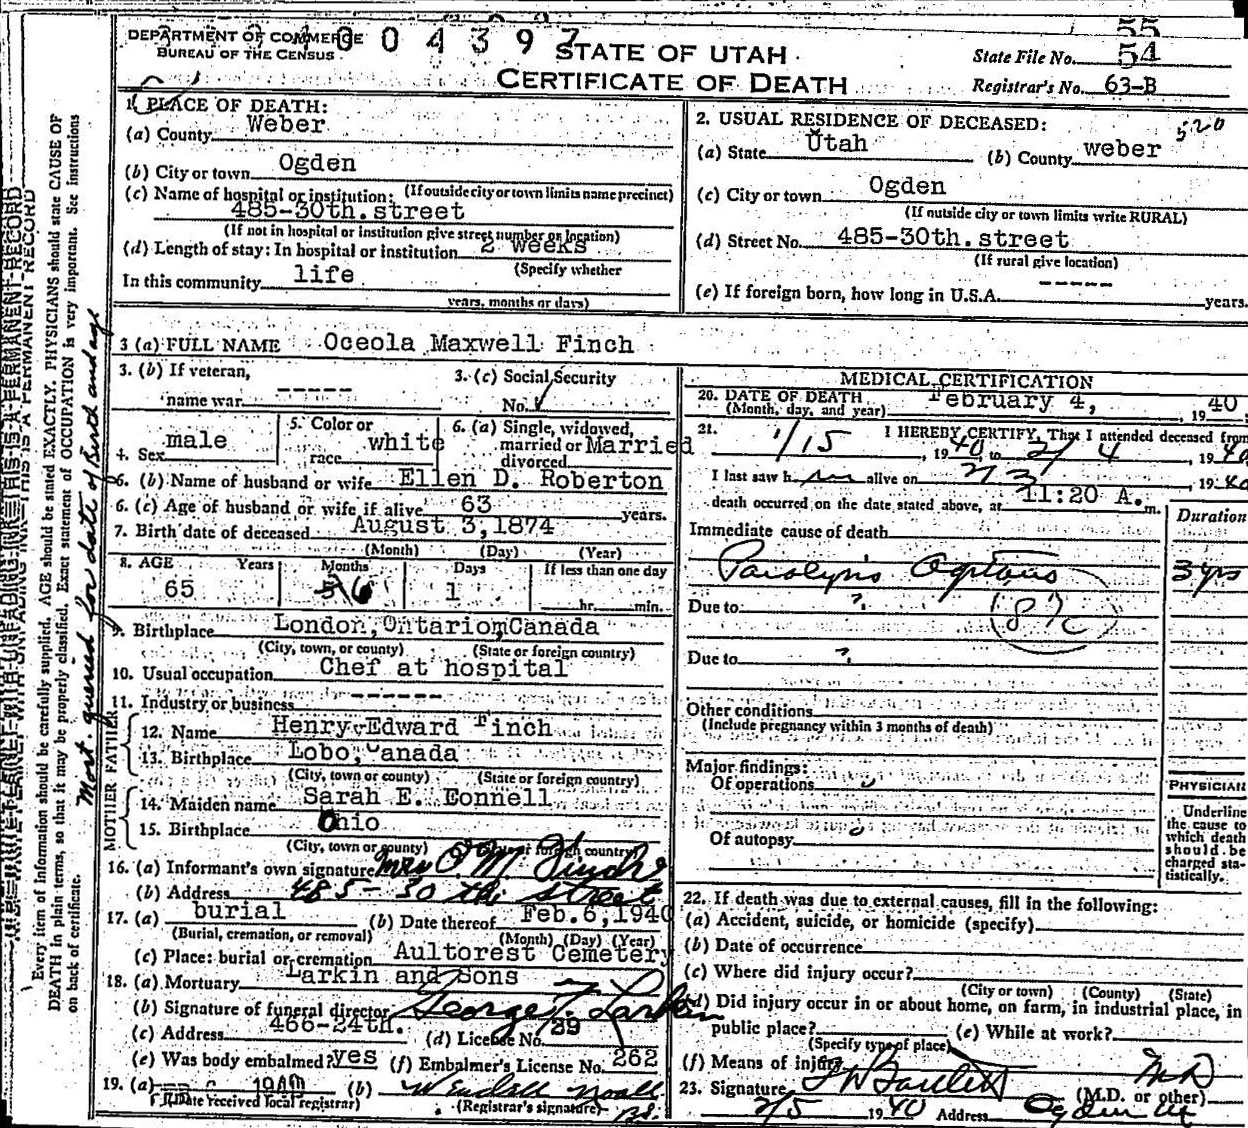 55
DEPARTMENT OF COMMERCE
BUREAU OF THE CENSUS
004397
STATE OF UTAH
CERTIFICATE OF DEATH
State File No. 54
Registrar's No. 63-B
1. PLACE OF DEATH:
(a) County Weber
(b) City or town Ogden
(If outside city or town limits name precinct)
(c) Name of hospital or institution:
485-30th.street
(If not in hospital or institution give street number or location)
(d) Length of stay: In hospital or institution 2 weeks
(Specify whether
In this community life
years, months or days)
2. USUAL RESIDENCE OF DECEASED:
520
(a) State Utah (b) County weber
(c) City or town Ogden
(If outside city or town limits write RURAL)
(d) Street No. 485-30th.street
(If rural give location)
(e) If foreign born, how long in U.S.A. ----- years.
3 (a) FULL NAME Oceola Maxwell Finch
3. (b) If veteran,
name war -----
3. (c) Social Security
No.
4. Sex male
5. Color or
race white
6. (a) Single, widowed,
married or Married
divorced
6. (b) Name of husband or wife Ellen D. Roberton
6. (c) Age of husband or wife if alive 63 years.
7. Birth date of deceased August 3,1874
(Month) (Day) (Year)
8. AGE Years Months Days If less than one day
65 6 1 hr. min.
9. Birthplace London,Ontario,Canada
(City, town, or county) (State or foreign country)
10. Usual occupation Chef at hospital
11. Industry or business ------
FATHER
12. Name Henry Edward Finch
13. Birthplace Lobo, Canada
(City, town or county) (State or foreign country)
MOTHER
14. Maiden name Sarah E. Bonnell
15. Birthplace Ohio
(City, town or county) (State or foreign country)
16. (a) Informant's own signature Mrs O. M. Finch
(b) Address 485-30 th street
17. (a) burial (b) Date thereof Feb.6,1940
(Burial, cremation, or removal) (Month) (Day) (Year)
(c) Place: burial or cremation Aultorest Cemetery
18. (a) Mortuary Larkin and Sons
(b) Signature of funeral director George F. Larkin
(c) Address 466-24th. (d) License No. 39
(e) Was body embalmed? yes (f) Embalmer's License No. 262
19. (a) 1940 (b) Wendell Noall
(Date received local registrar) (Registrar's signature)
MEDICAL CERTIFICATION
20. DATE OF DEATH
(Month, day, and year) February 4, 1940
21. I HEREBY CERTIFY, That I attended deceased from
1/15, 1940 to 2/4, 1940
I last saw him alive on 2/3, 1940
death occurred on the date stated above, at 11:20 A. m.
Duration
Immediate cause of death
Paralysis Agitans 3 yrs
Due to ?
87c
Due to ?
Other conditions
(Include pregnancy within 3 months of death)
Major findings:
Of operations
Of autopsy
PHYSICIAN
Underline
the cause to
which death
should be
charged sta-
tistically.
22. If death was due to external causes, fill in the following:
(a) Accident, suicide, or homicide (specify)
(b) Date of occurrence
(c) Where did injury occur?
(City or town) (County) (State)
(d) Did injury occur in or about home, on farm, in industrial place, in
public place? (e) While at work?
(Specify type of place)
(f) Means of injury
23. Signature MD
(M.D. or other)
2/5 1940 Address Ogden Ut
Most. queried for date of Birth and age
Every item of information should be carefully supplied. AGE should be stated EXACTLY. PHYSICIANS should state CAUSE OF
DEATH in plain terms, so that it may be properly classified. Exact statement of OCCUPATION is very important. See instructions
on back of certificate.